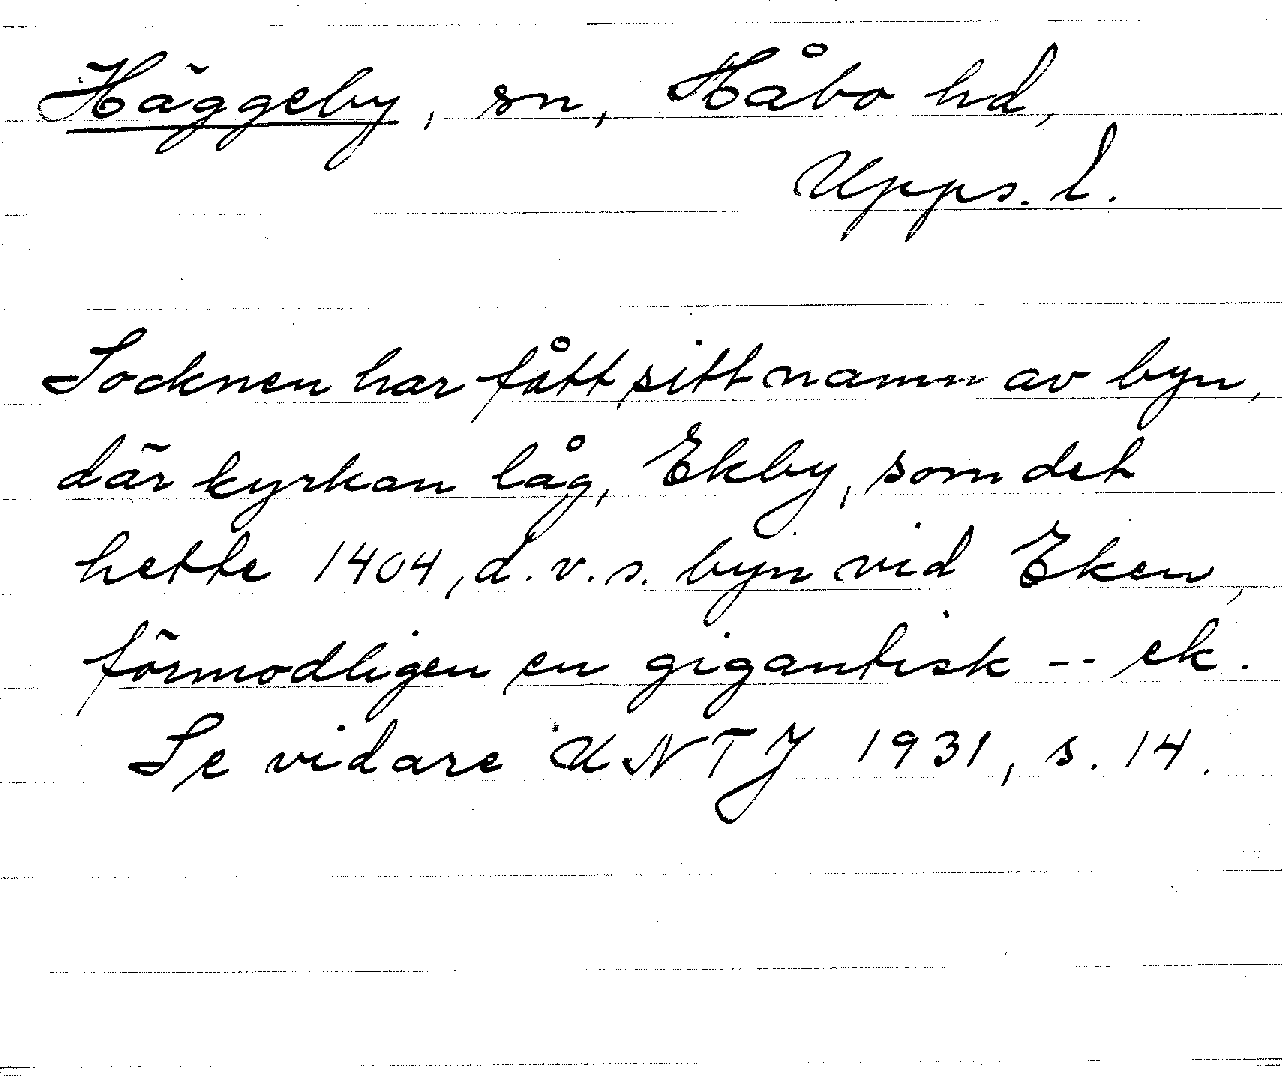 Häggeby, sn, Håbo hd,
Upps. l.
Socknen har fått sitt namn av byn,
där kyrkan låg, Ekby, som det
hette 1404, d.v.s. byn vid Eken,
förmodligen en gigantisk -- ek.
Se vidare UNTJ 1931, s. 14.